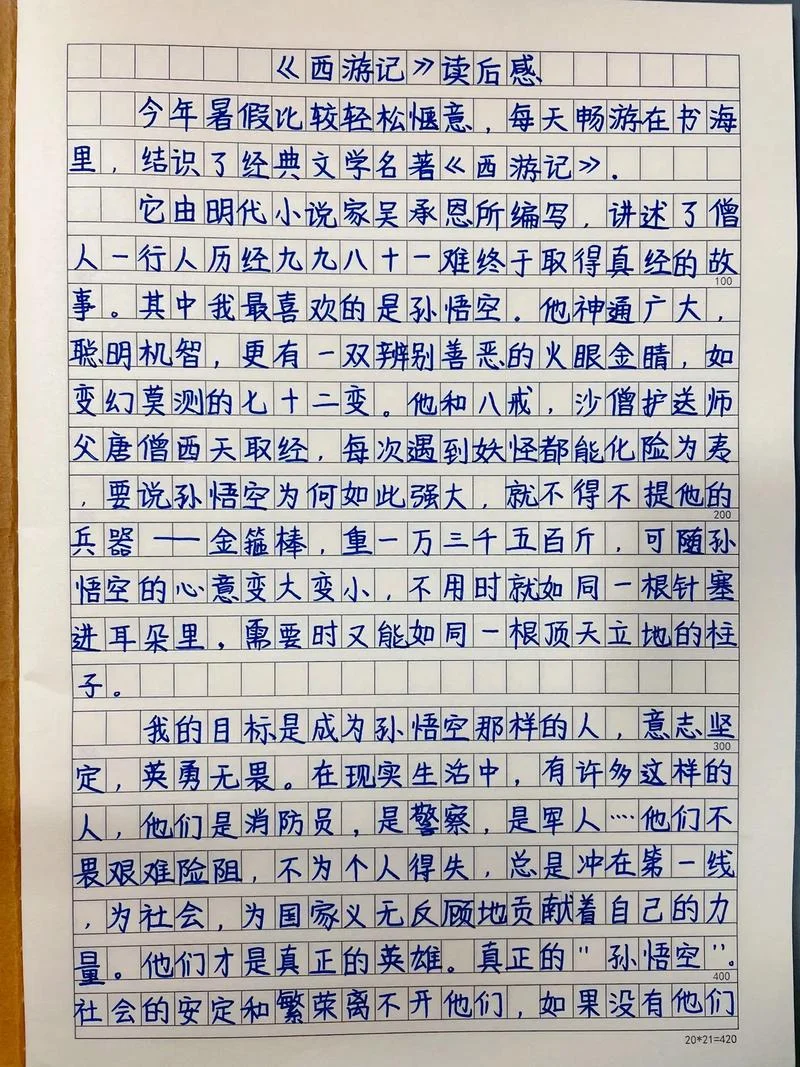 《西游记》读后感
今年暑假比较轻松惬意，每天畅游在书海
里，结识了经典文学名著《西游记》.
它由明代小说家吴承恩所编写，讲述了僧
人一行人历经九九八十一难终于取得真经的故
100
事。其中我最喜欢的是孙悟空.他神通广大，
聪明机智，更有一双辨别善恶的火眼金睛，如
变幻莫测的七十二变。他和八戒，沙僧护送师
父唐僧西天取经，每次遇到妖怪都能化险为夷
，要说孙悟空为何如此强大，就不得不提他的
200
兵器——金箍棒，重一万三千五百斤，可随孙
悟空的心意变大变小，不用时就如同一根针塞
进耳朵里，需要时又能如同一根顶天立地的柱
子。
我的目标是成为孙悟空那样的人，意志坚
300
定，英勇无畏。在现实生活中，有许多这样的
人，他们是消防员，是警察，是军人…他们不
畏艰难险阻，不为个人得失，总是冲在第一线
，为社会，为国家义无反顾地贡献着自己的力
量。他们才是真正的英雄。真正的"孙悟空"。
400
社会的安定和繁荣离不开他们，如果没有他们
20*21=420